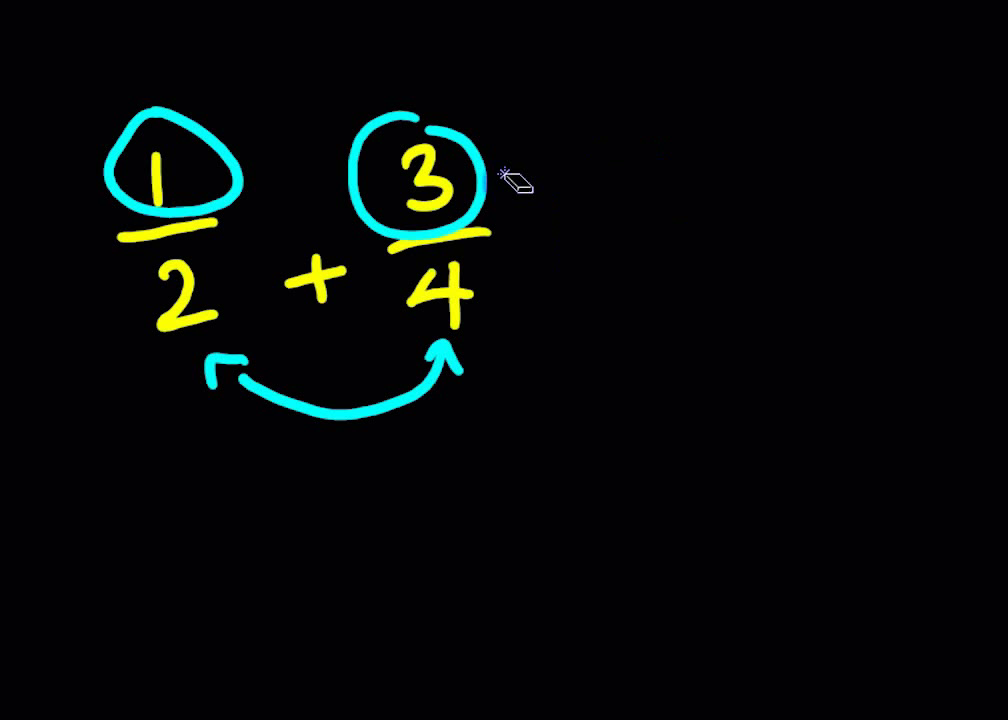 1/2 + 3/4